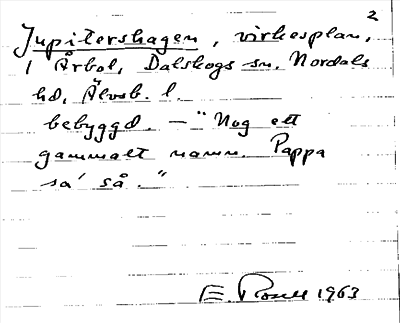 2
Jupitershagen, virkesplan,
i Årbol, Dalskogs sn. Nordals
hd, Älvsb. l.
bebyggd. – "Nog ett
gammalt namn. Pappa
sa' så."
E. 1963